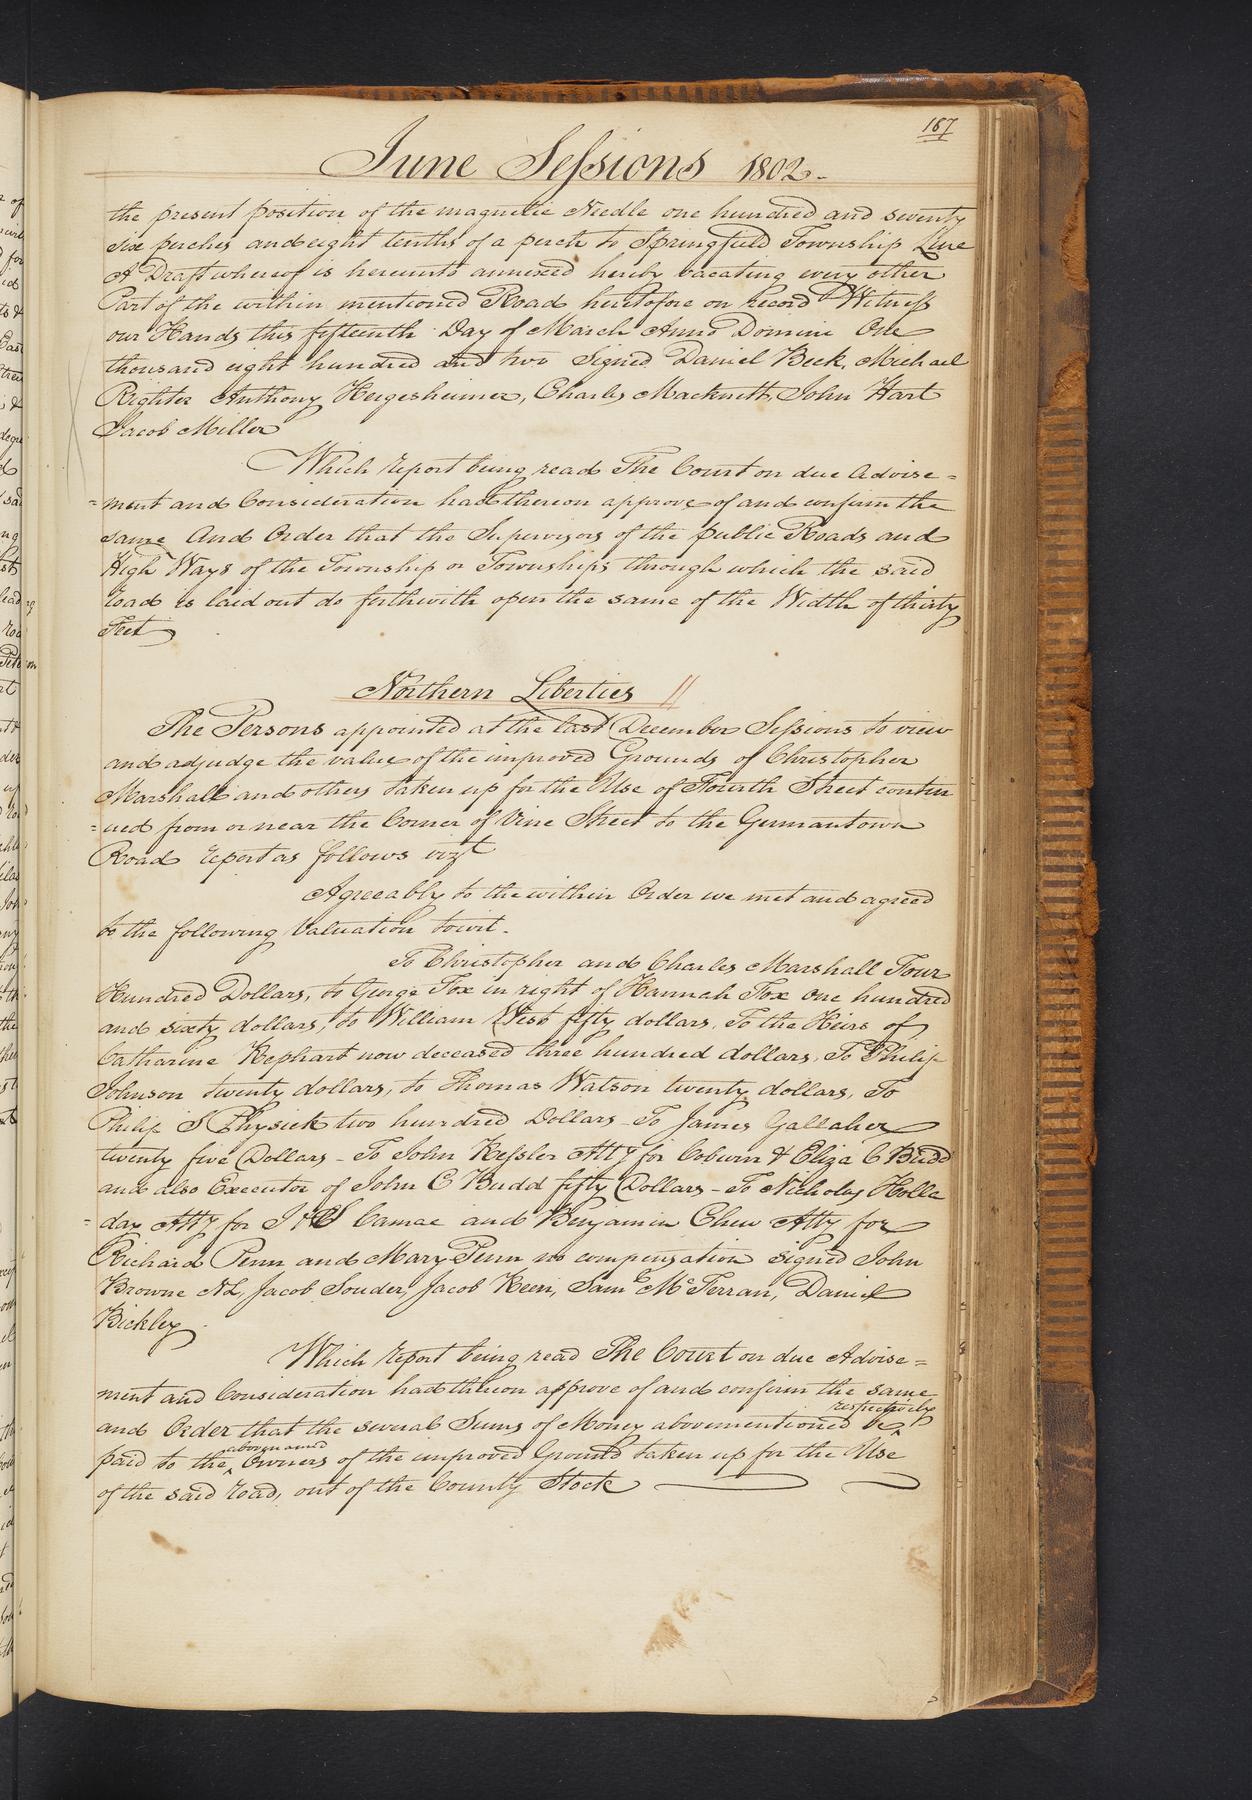 187
June Sessions 1802.
the present position of the magnetic Needle one hundred and seventy
six perches and eight tenths of a perch to Springfield Township Line
A Draft whereof is hereunto annexed hereby vacating every other
Part of the within mentioned Road heretofore on record Witness
our Hands this fifteenth Day of March Anno Domini One
thousand eight hundred and two Signed Daniel Beck, Michael
Righter Anthony Hergesheimer, Charles Macknett, John Hart
Jacob Miller
Which report being read The Court on due Advise=
=ment and Consideration had thereon approve of and confirm the
same And Order that the Supervisors of the public Roads and
High Ways of the Township or Townships through which the said
road is laid out do forthwith open the same of the Width of thirty
Feet
Northern Liberties //
The Persons appointed at the last December Sessions to view
and adjudge the value of the improved Grounds of Christopher
Marshall and others taken up for the Use of Fourth Street contin
=ued from or near the Corner of Vine Street to the Germantown
Road report as follows vizt
Agreeably to the within Order we met and agreed
to the following Valuation towit.
To Christopher and Charles Marshall Four
Hundred Dollars, to George Fox in right of Hannah Fox one hundred
and sixty dollars, to William West fifty dollars, To the Heirs of
Catharine Kephart now deceased three hundred dollars, To Philip
Johnson twenty dollars, to Thomas Watson twenty dollars, To
Philip S Physick two hundred Dollars - To James Gallaher
twenty five Dollars - To John Kessler Atty for Coburn & Eliza C Budd
and also Executor of John C Budd fifty Dollars - To Nicholas Holla
=day Atty for J & S Camac and Benjamin Chew Atty for
Richard Penn and Mary Penn no compensation signed John
Browne NL, Jacob Souder, Jacob Keen, Saml McFerran, Daniel
Bickley
Which report being read The Court on due Advise=
ment and Consideration had thereon approve of and confirm the same
and Order that the several Sums of Money abovementioned be ^respectively
paid to the ^abovenamed Owners of the improved Ground taken up for the Use
of the said road, out of the County Stock